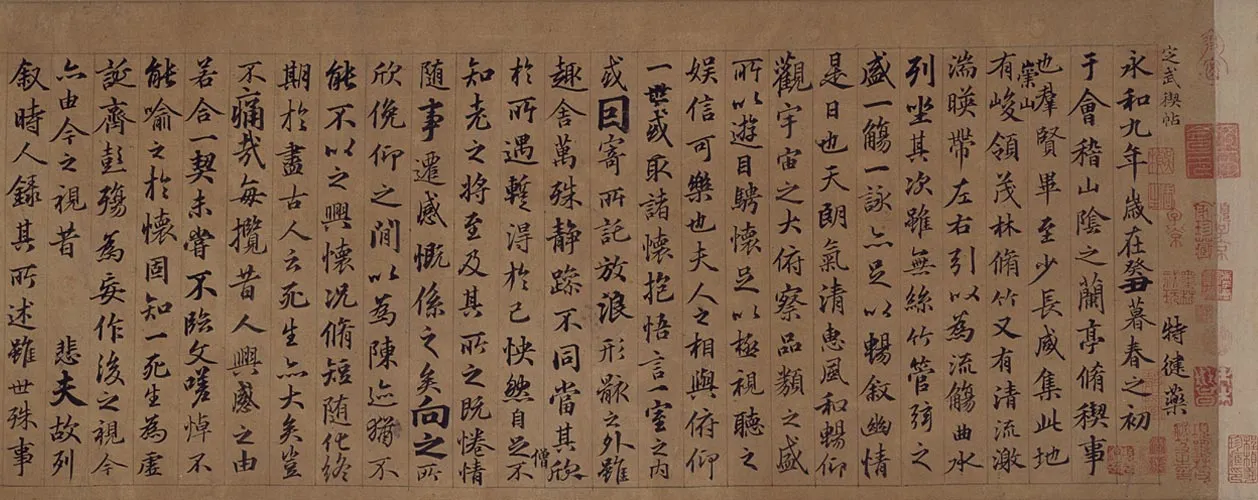 定武禊帖
特健藥
永和九年歲在癸丑暮春之初
于會稽山陰之蘭亭脩禊事
也羣賢畢至少長咸集此地
崇山
有峻領茂林脩竹又有清流激
湍暎帶左右引以為流觴曲水
列坐其次雖無絲竹管弦之
盛一觴一詠亦足以暢敘幽情
是日也天朗氣清惠風和暢仰
觀宇宙之大俯察品類之盛
所以遊目騁懷足以極視聽之
娛信可樂也夫人之相與俯仰
一世或取諸懷抱悟言一室之內
或因寄所託放浪形骸之外雖
趣舍萬殊靜躁不同當其欣
於所遇蹔得於己怏然自足不
僧
知老之將至及其所之既惓情
随事遷感慨係之矣向之所
欣俛仰之閒以為陳迹猶不
能不以之興懷況脩短随化終
期於盡古人云死生亦大矣豈
不痛哉每攬昔人興感之由
若合一契未嘗不臨文嗟悼不
能喻之於懷固知一死生為虛
誕齊彭殤為妄作後之視今
亦由今之視昔 悲夫故列
叙時人錄其所述雖世殊事